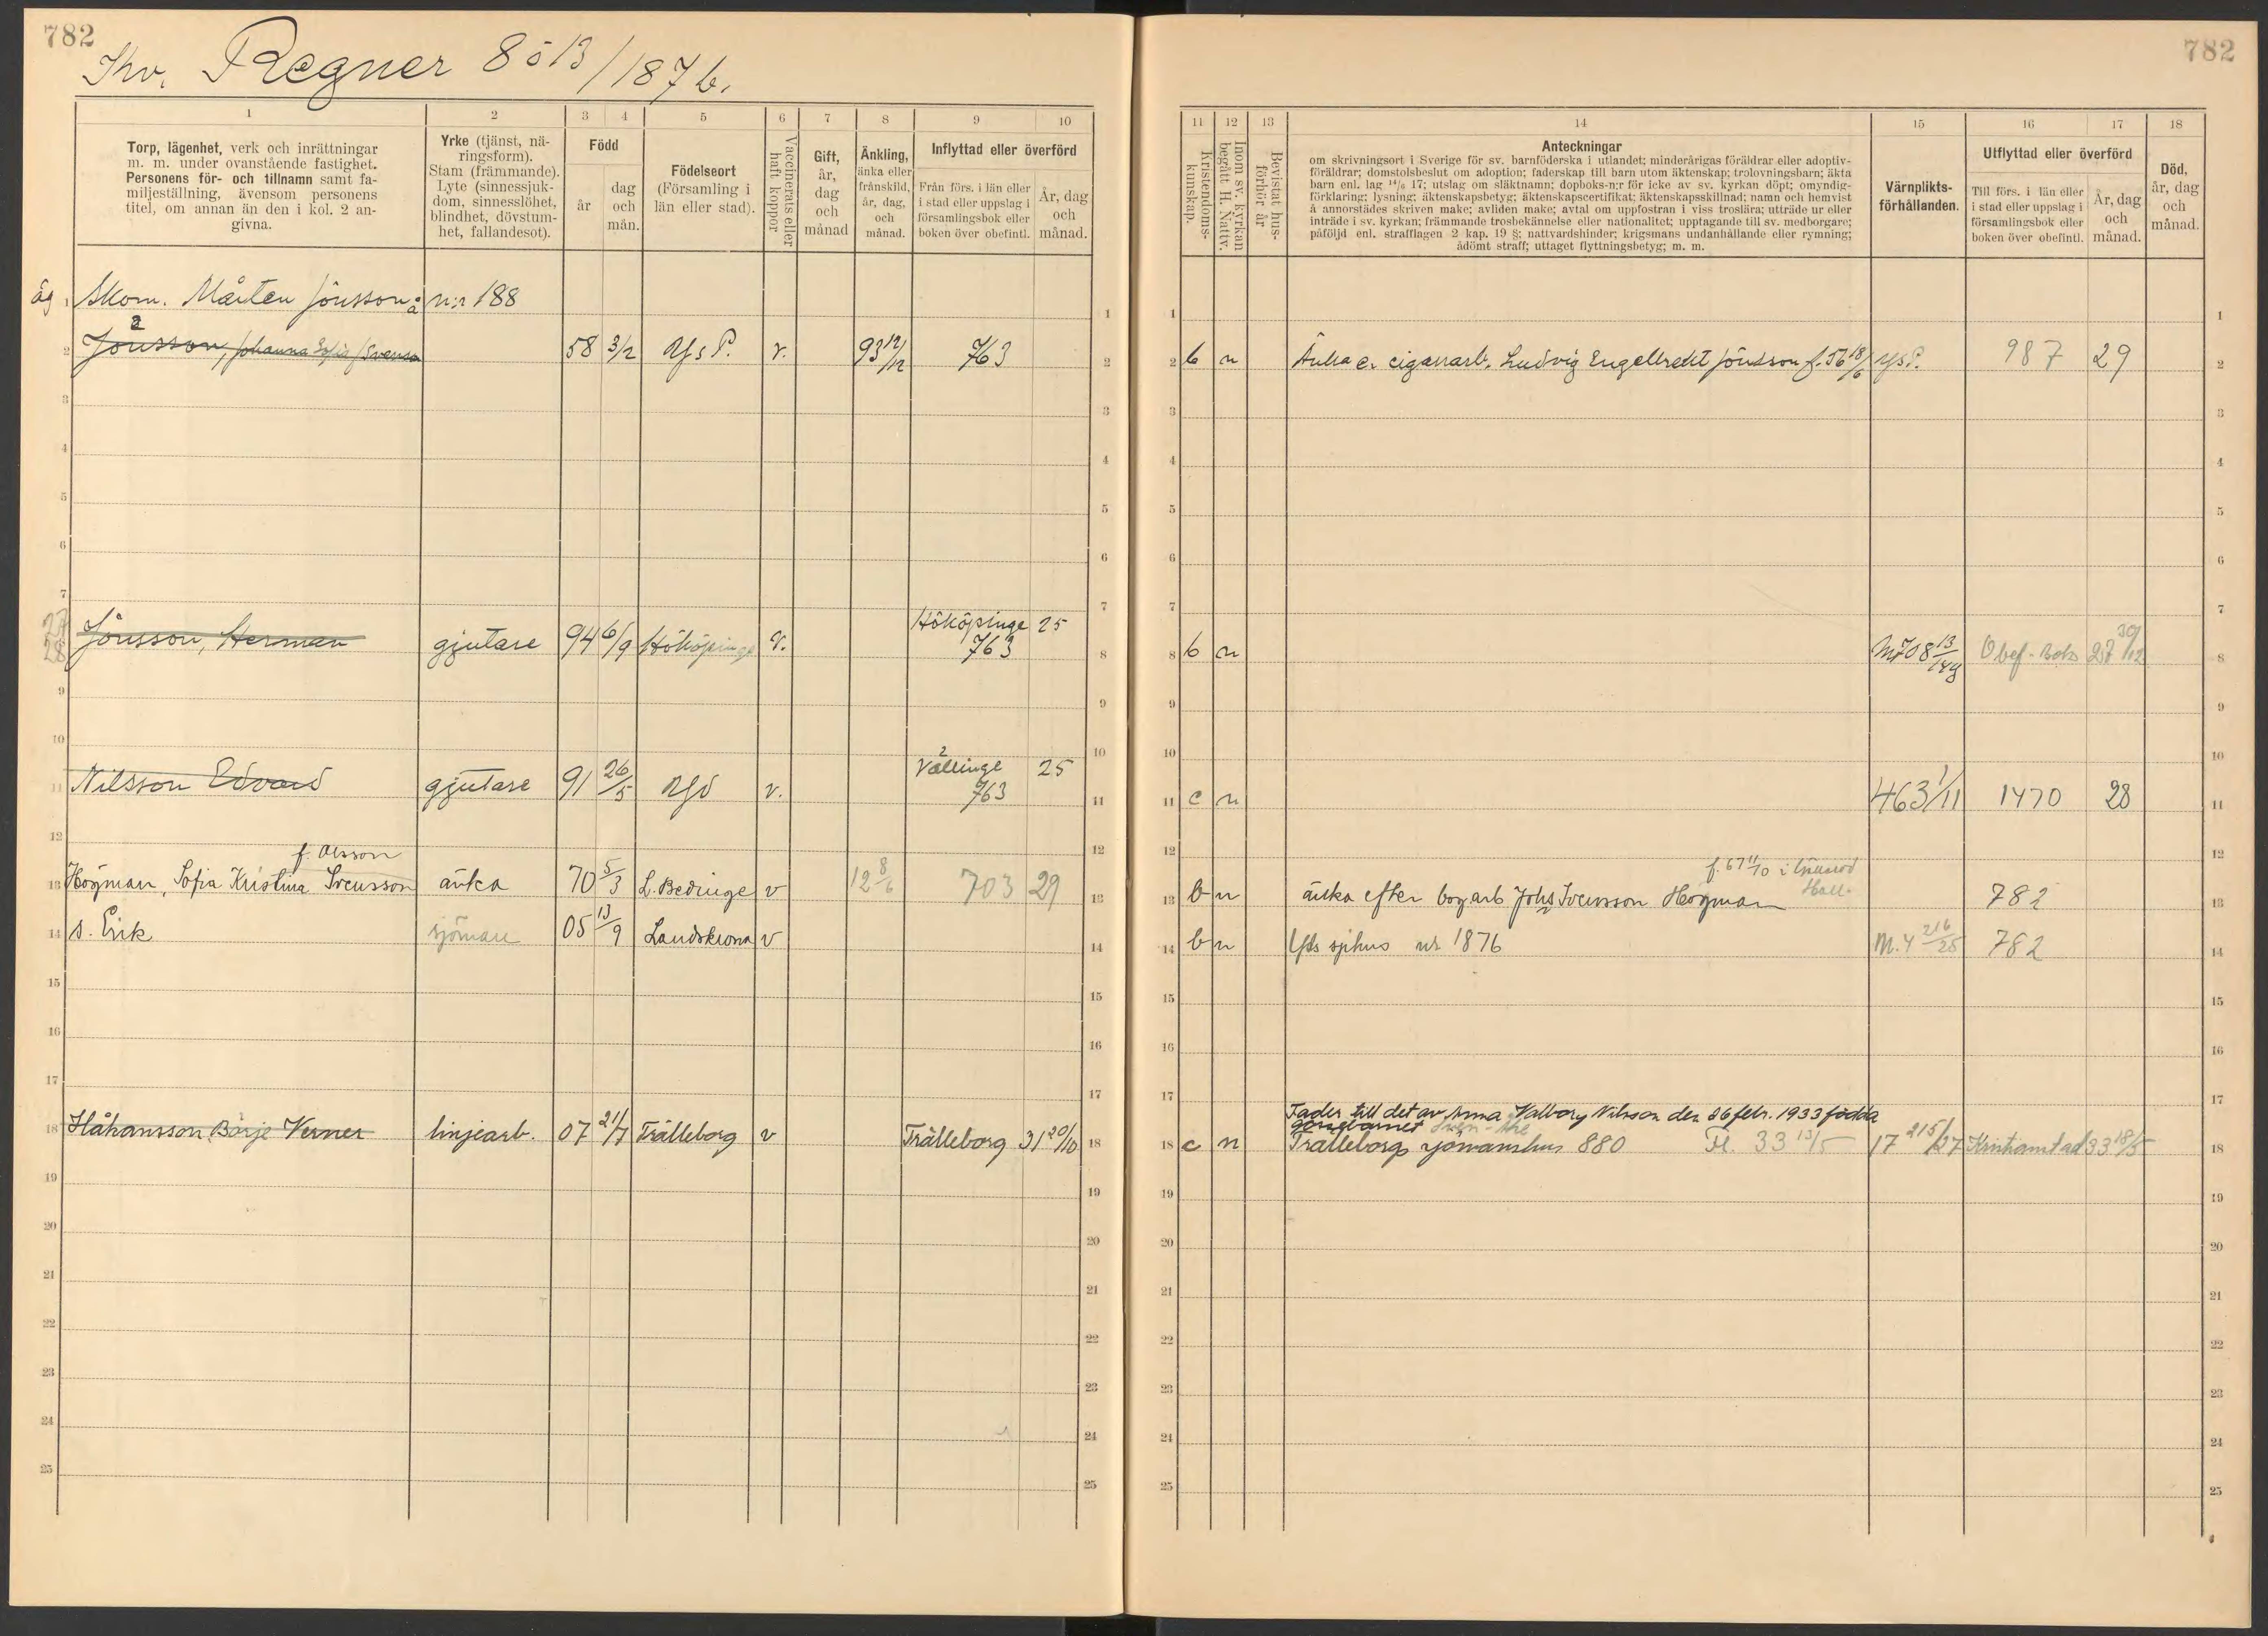 782
Kv. Regner 8 ö 13/1876.
1 2 3 4 5 6 7 8 9 10
Torp, lägenhet, verk och inrättningar
m. m. under ovanstående fastighet.
Personens för- och tillnamn samt fa-
miljeställning, ävensom personens
titel, om annan än den i kol. 2 an-
givna.
Yrke (tjänst, nä-
ringsform).
Stam (främmande).
Lyte (sinnessjuk-
dom, sinnesslöhet,
blindhet, dövstum-
het, fallandesot).
Född
år
dag
och
mån.
Födelseort
(Församling i
län eller stad).
Vaccinerats eller
haft koppor
Gift,
år,
dag
och
månad
Änkling,
änka eller
frånskild,
år, dag,
och
månad.
Inflyttad eller överförd
Från förs. i län eller
i stad eller uppslag i
församlingsbok eller
boken över obefintl.
År, dag
och
månad.
äg 1 Skom. Mårten Jönsson å n:r 188 1
2
2 Jönsson, Johanna Sofia /Svensson 58 3/2 Ys P. v. 93 12/12 763 2
3 3
4 4
5 5
6 6
7 Hököpinge 25 7
27
28 Jönsson, Herman gjutare 94 6/9 Hököpinge v. 763 8
9 9
10 2 10
Vellinge 25
11 Nilsson Edvard gjutare 91 26/5 Ysd v. 763 11
12 f. Olsson 12
13 Högman, Sofia Kristina Svensson änka 70 5/3 L. Bedinge v 12 8/6 703 29 13
14 s. Erik sjöman 05 13/9 Landskrona v 14
15 15
16 16
17 17
18 Håkansson Börje Verner linjearb. 07 21/7 Trälleborg v Trälleborg 31 20/10 18
19 19
20 20
21 21
22 22
23 23
24 24
25 25
782
11 12 13 14 15 16 17 18
Kristendoms-
kunskap.
Inom sv. kyrkan
begått H. Nattv.
Bevistat hus-
förhör år
Anteckningar
om skrivningsort i Sverige för sv. barnföderska i utlandet; minderårigas föräldrar eller adoptiv-
föräldrar; domstolsbeslut om adoption; faderskap till barn utom äktenskap; trolovningsbarn; äkta
barn enl. lag 14/6 17; utslag om släktnamn; dopboks-n:r för icke av sv. kyrkan döpt; omyndig-
förklaring; lysning; äktenskapsbetyg; äktenskapscertifikat; äktenskapsskillnad; namn och hemvist
å annorstädes skriven make; avliden make; avtal om uppfostran i viss troslära; utträde ur eller
inträde i sv. kyrkan; främmande trosbekännelse eller nationalitet; upptagande till sv. medborgare;
påföljd enl. strafflagen 2 kap. 19 §; nattvardshinder; krigsmans undanhållande eller rymning;
ådömt straff; uttaget flyttningsbetyg; m. m.
Värnplikts-
förhållanden.
Utflyttad eller överförd
Till förs. i län eller
i stad eller uppslag i
församlingsbok eller
boken över obefintl.
År, dag
och
månad.
Död,
år, dag
och
månad.
1 1
2 b n Änka e. cigarrarb. Ludvig Engelbrekt Jönsson f. 56 18/6 Ys P. 987 29 2
3 3
4 4
5 5
6 6
7 7
8 b n Obef-Bok 27 30/12 8
9 9
10 10
11 c n 463 1/11 1470 28 11
12 f. 67 11/10 i 12
Hall.
13 b n änka efter Johs Svensson Högman 782 13
14 b n Yds sjhus nr 1876 M. 4 216/25 782 14
15 15
16 16
17 Fader till det av Anna Valborg Nilsson den 26 febr. 1933 födda 17
gossebarnet Sven-Åke
18 c n Trälleborgs sjömanshus 880 Fl. 33 13/5 17 215/27 Kristianstad 33 18/5 18
19 19
20 20
21 21
22 22
23 23
24 24
25 25